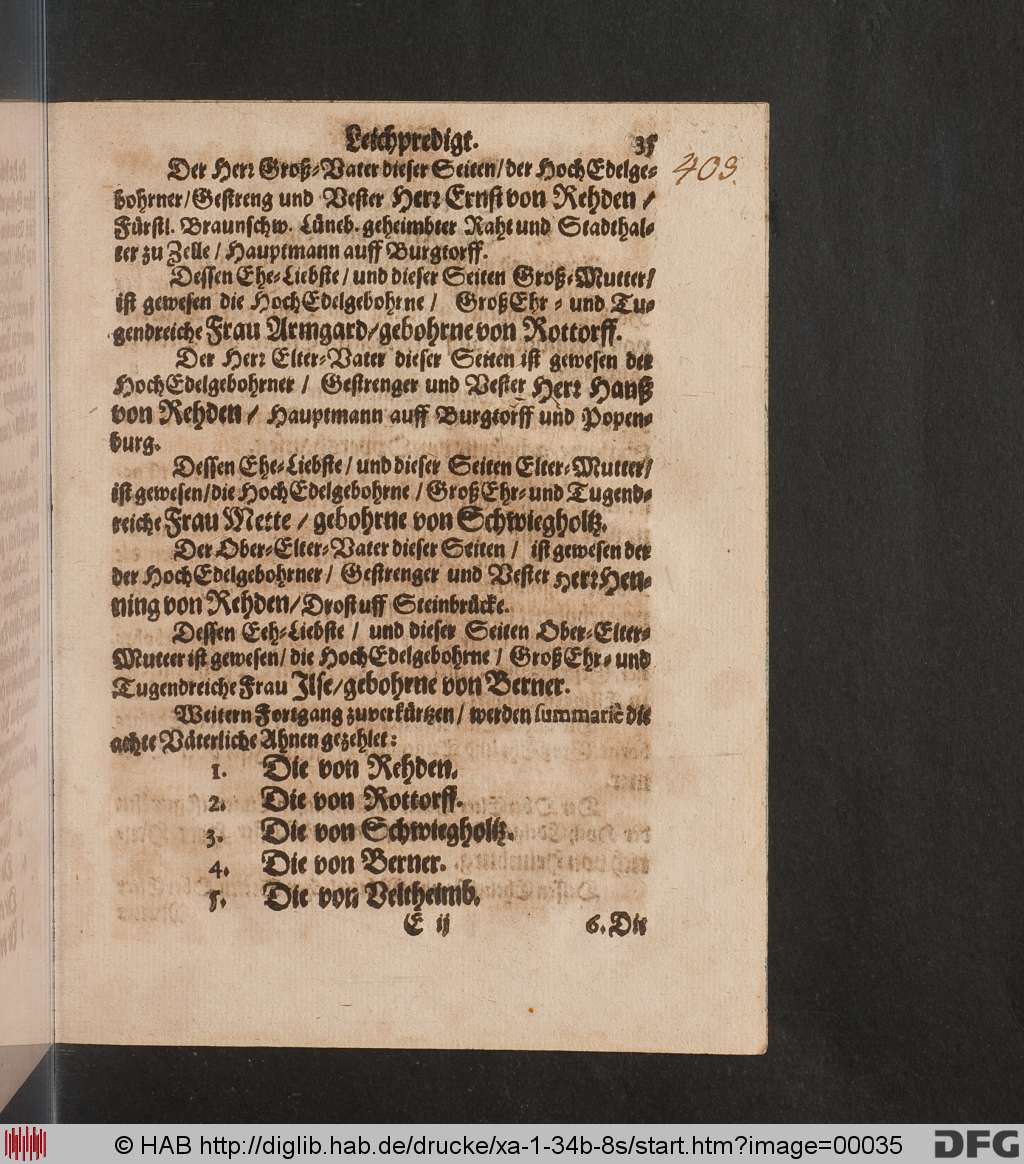 Leichpredigt. 35
403.
Der Herr Groß-Vater dieser Seiten/der HochEdelge-
bohrner/Gestreng und Vester Herr Ernst von Rehden /
Fürstl. Braunschw. Lüneb. geheimbter Raht und Stadthal-
ter zu Zelle / Hauptmann auff Burgtorff.
Dessen Ehe-Liebste / und dieser Seiten Groß-Mutter/
ist gewesen die HochEdelgebohrne / GroßEhr - und Tu-
gendreiche Frau Armgard/gebohrne von Rottorff.
Der Herr Elter-Vater dieser Seiten ist gewesen der
HochEdelgebohrner / Gestrenger und Vester Herr Hanß
von Rehden / Hauptmann auff Burgtorff und Popen-
burg.
Dessen Ehe-Liebste / und dieser Seiten Elter-Mutter/
ist gewesen/die HochEdelgebohrne / GroßEhr- und Tugend-
reiche Frau Mette / gebohrne von Schwiegholtz.
Der Ober-Elter-Vater dieser Seiten / ist gewesen der
der HochEdelgebohrner / Gestrenger und Vester Herr Hen-
ning von Rehden/Drost uff Steinbrücke.
Dessen Eeh-Liebste / und dieser Seiten Ober-Elter-
Mutter ist gewesen / die HochEdelgebohrne / GroßEhr- und
Tugendreiche Frau Ilse/gebohrne von Berner.
Weitern Fortgang zuverkürtzen / werden summariè die
achte Väterliche Ahnen gezehlet:
1. Die von Rehden.
2. Die von Rottorff.
3. Die von Schwiegholtz.
4. Die von Berner.
5. Die von Veltheimb.
E ij 6. Die
© HAB http://diglib.hab.de/drucke/xa-1-34b-8s/start.htm?image=00035
DFG